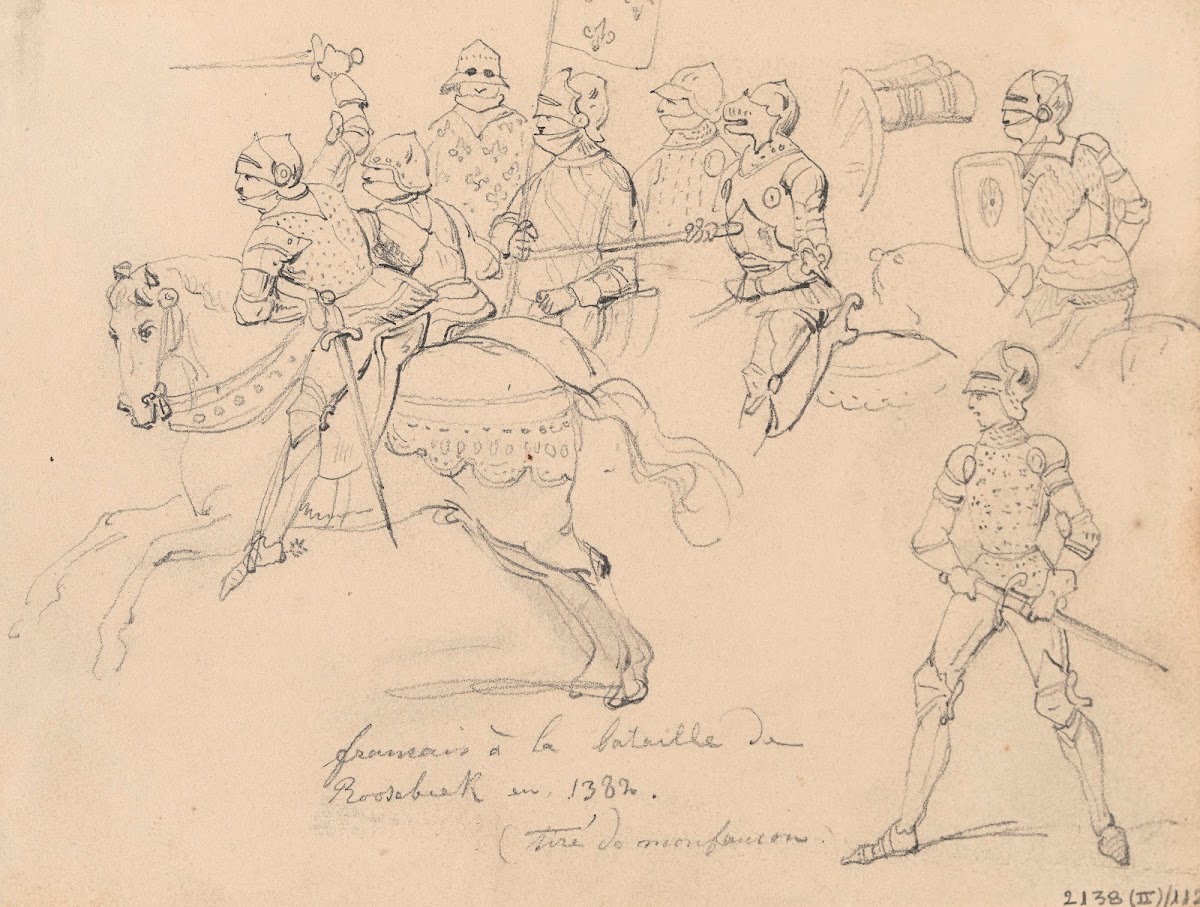 francais à la bataille de
Roosebeek en 1382.
(tiré de monfaucon.)
2138 (II)/112